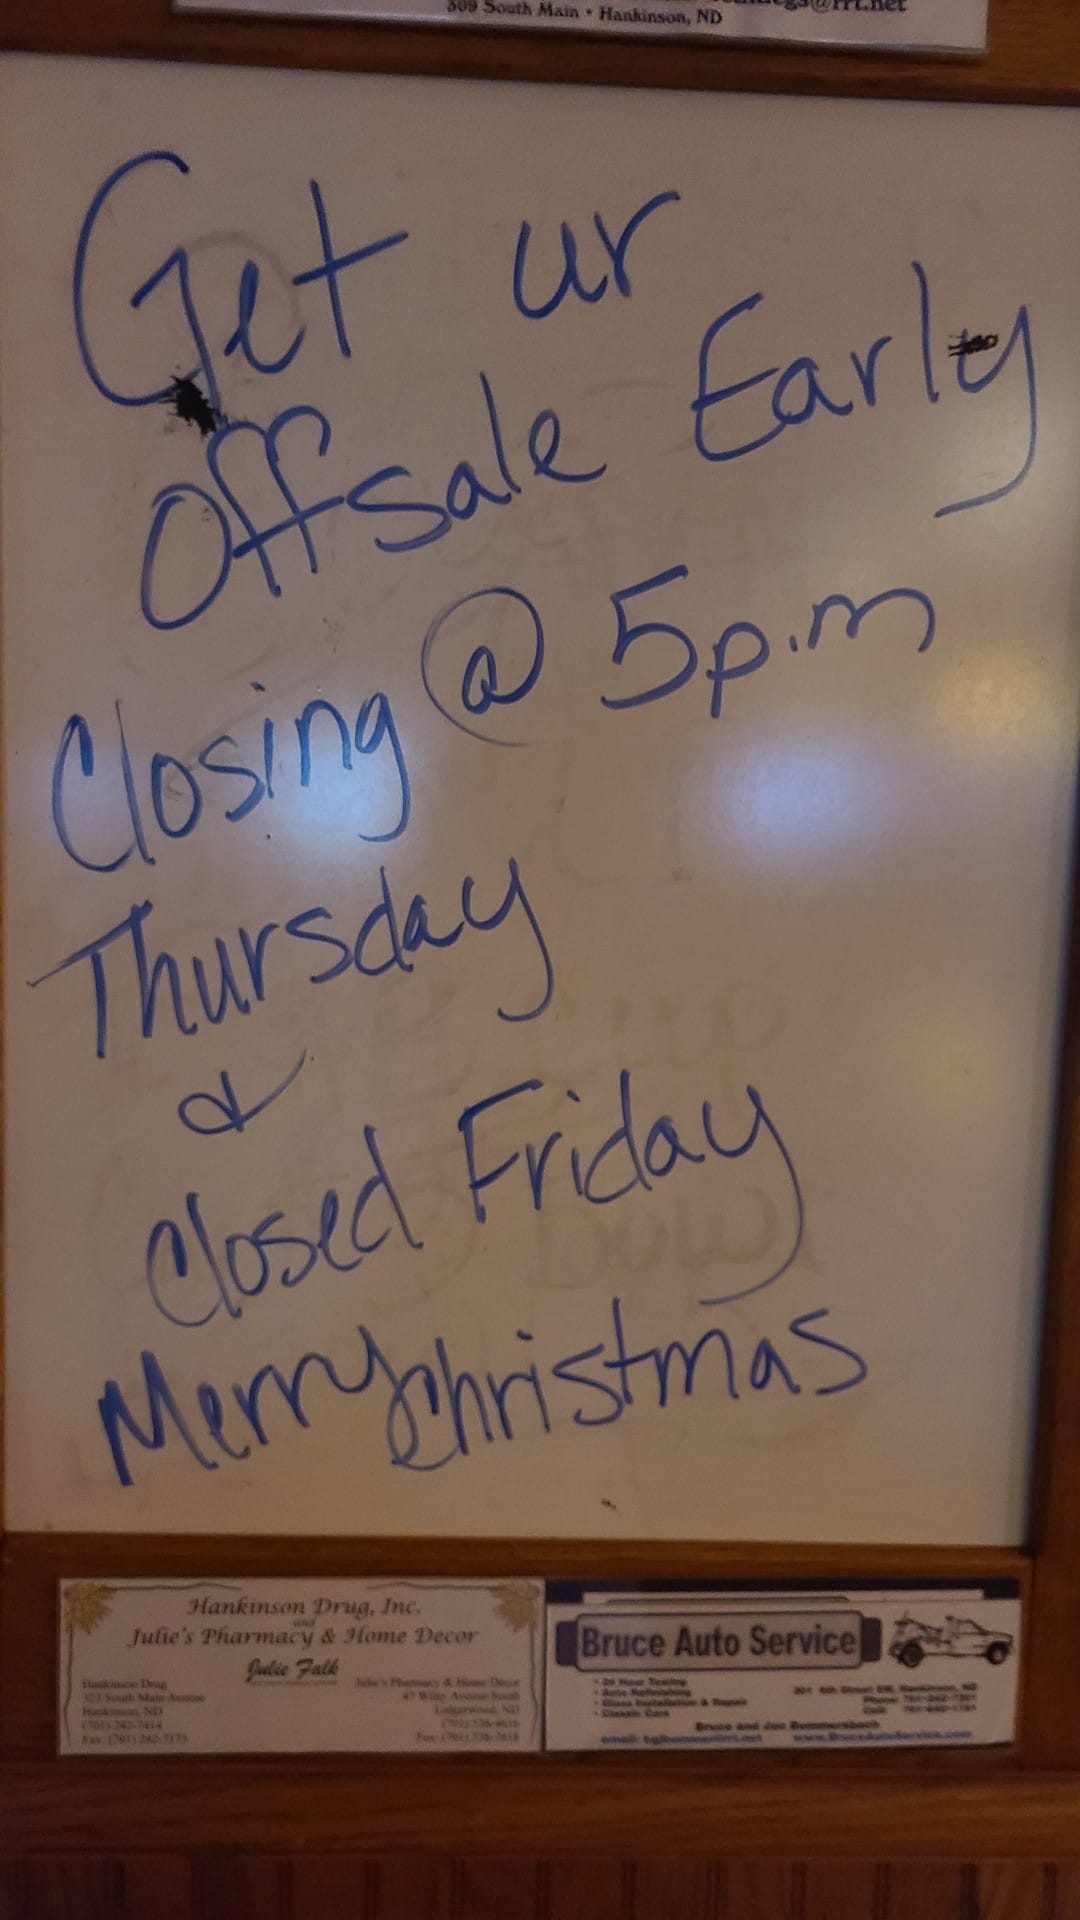 309 South Main • Hankinson, ND
Get ur
Offsale Early
Closing @ 5p.m
Thursday
&
Closed Friday
Merry Christmas
Hankinson Drug, Inc.
and
Julie's Pharmacy & Home Decor
Julie Falk
Hankinson Drug
323 South Main Avenue
Hankinson, ND
(701) 242-7414
Fax: (701) 242-7173
Julie's Pharmacy & Home Decor
47 Wiley Avenue South
Lidgerwood, ND
Bruce Auto Service
• 24 Hour Towing
• Auto Refinishing
• Glass Installation & Repair
• Classic Cars
Hankinson, ND
Bruce and Jon Bommersbach
www.BruceAutoService.com